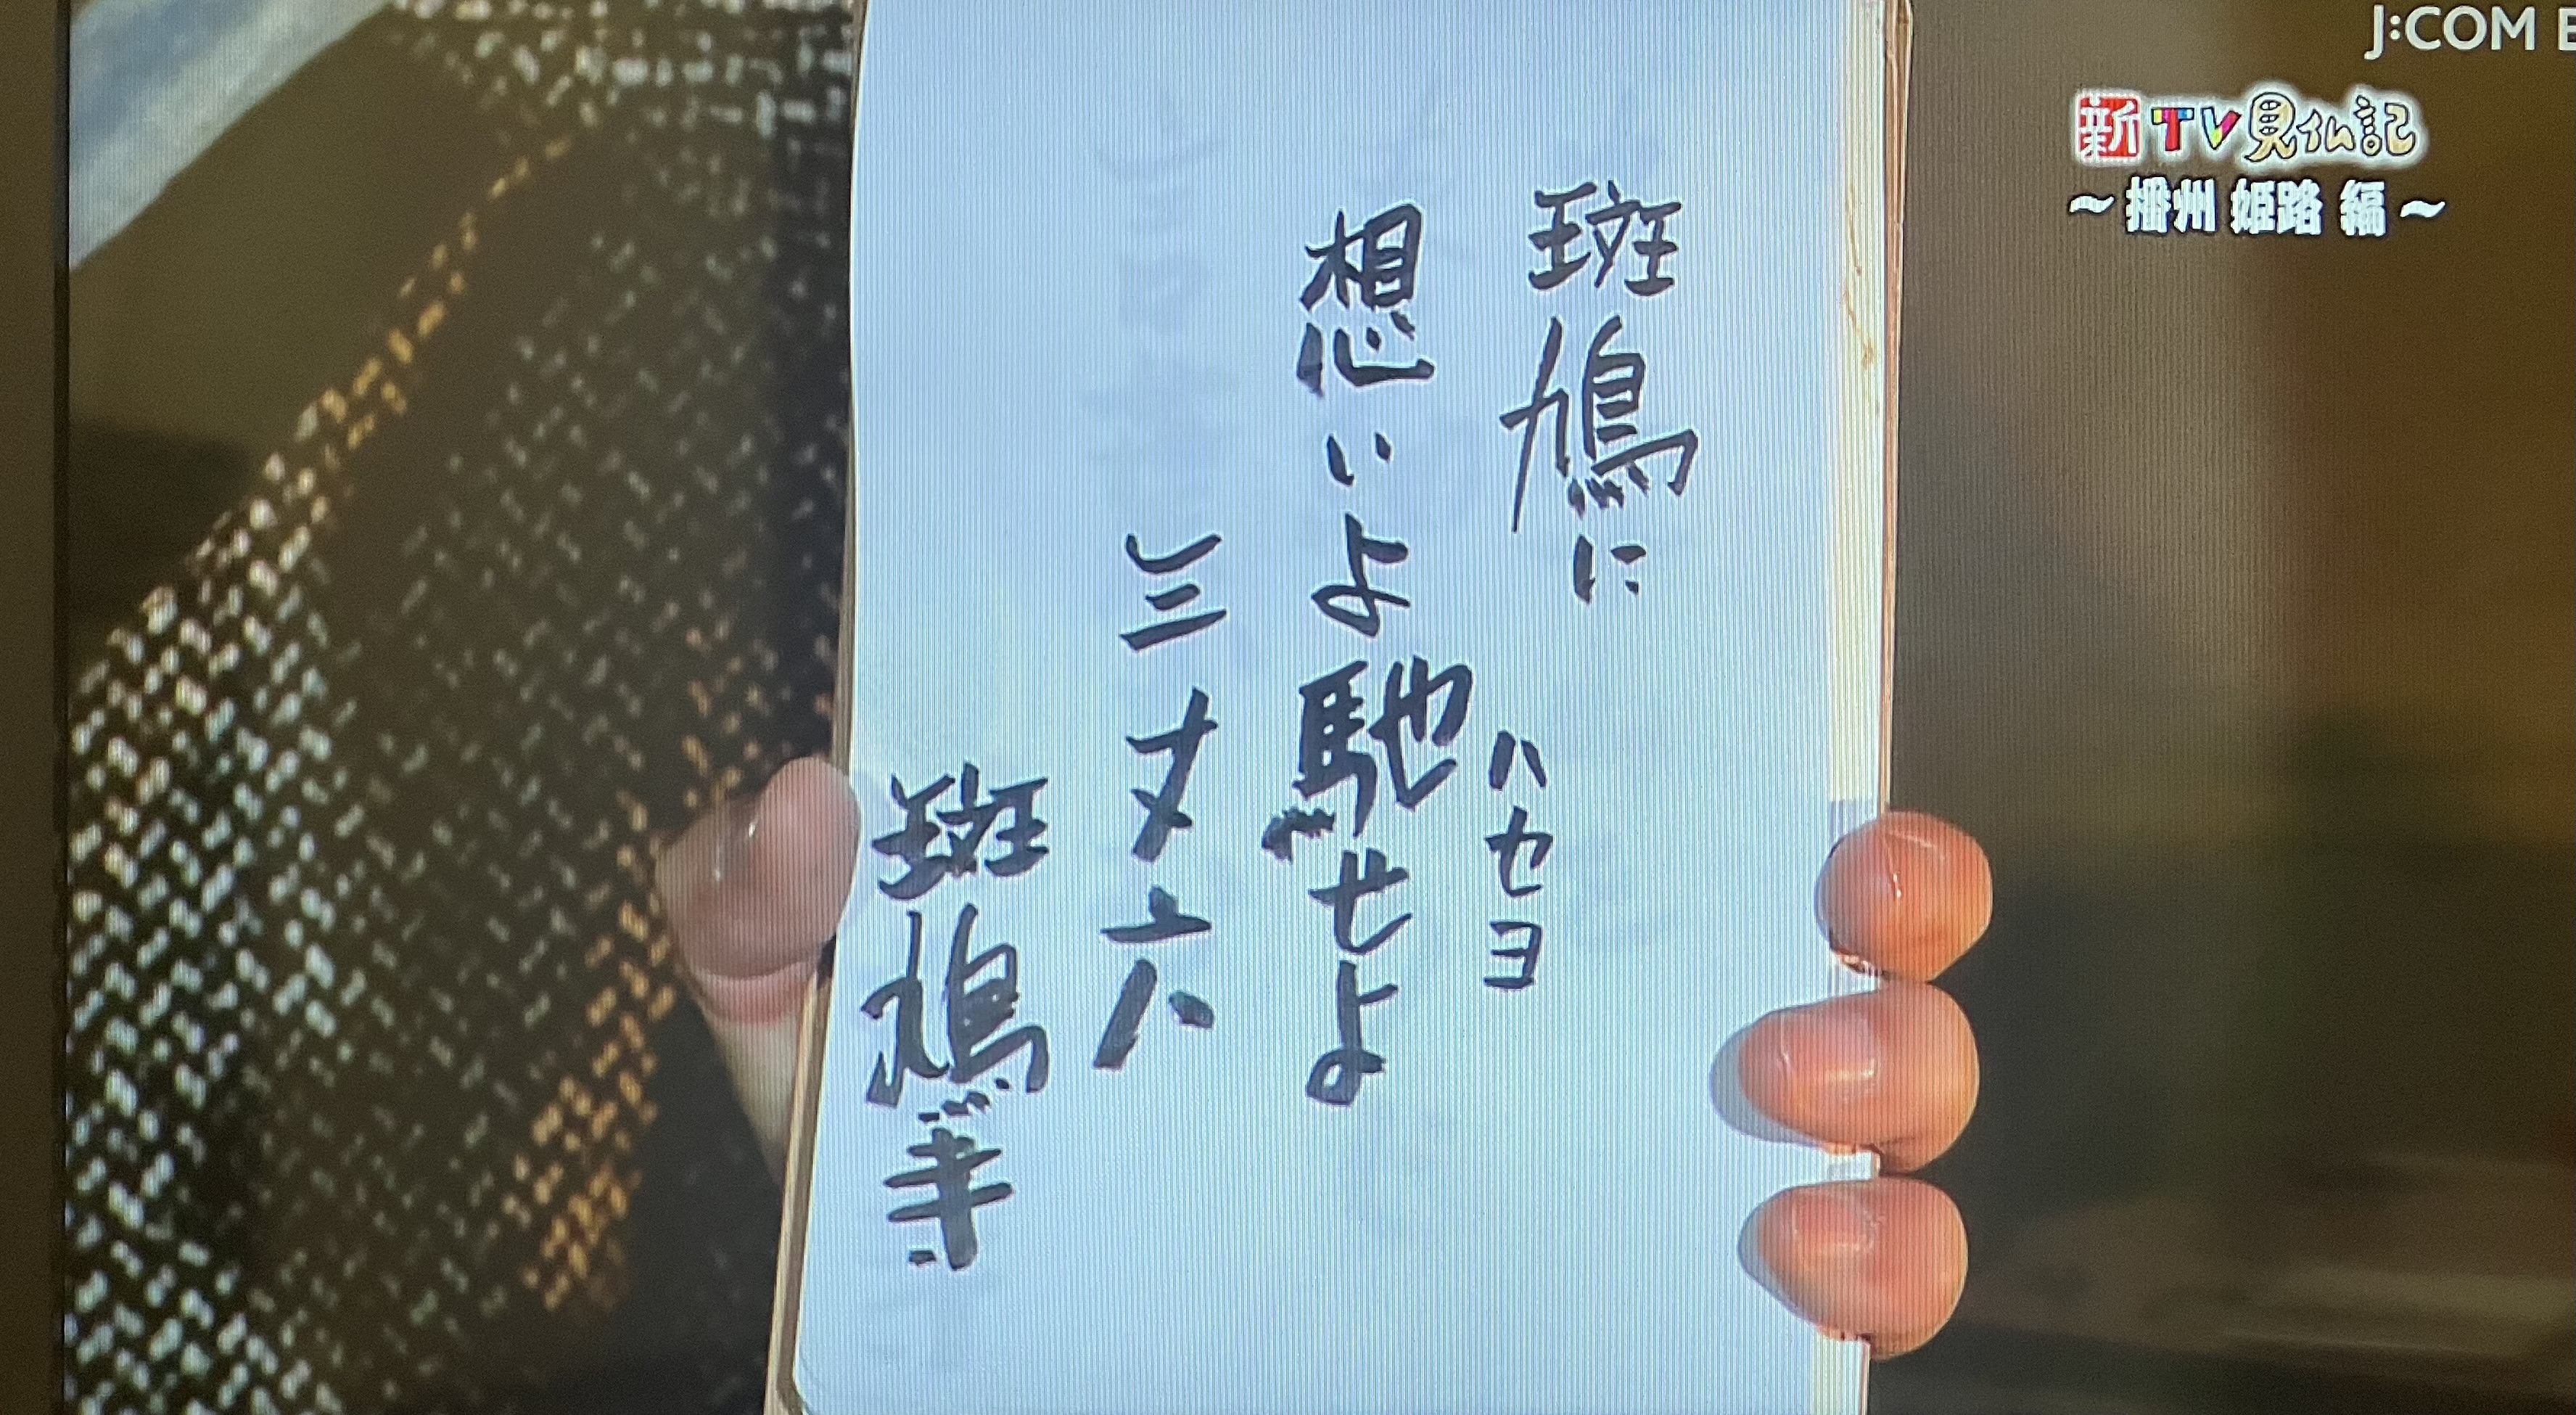 J:COM
新TV見仏記
～播州 姫路 編～
斑鳩に
想いよ馳せよ
ハセヨ
三丈六
斑鳩寺